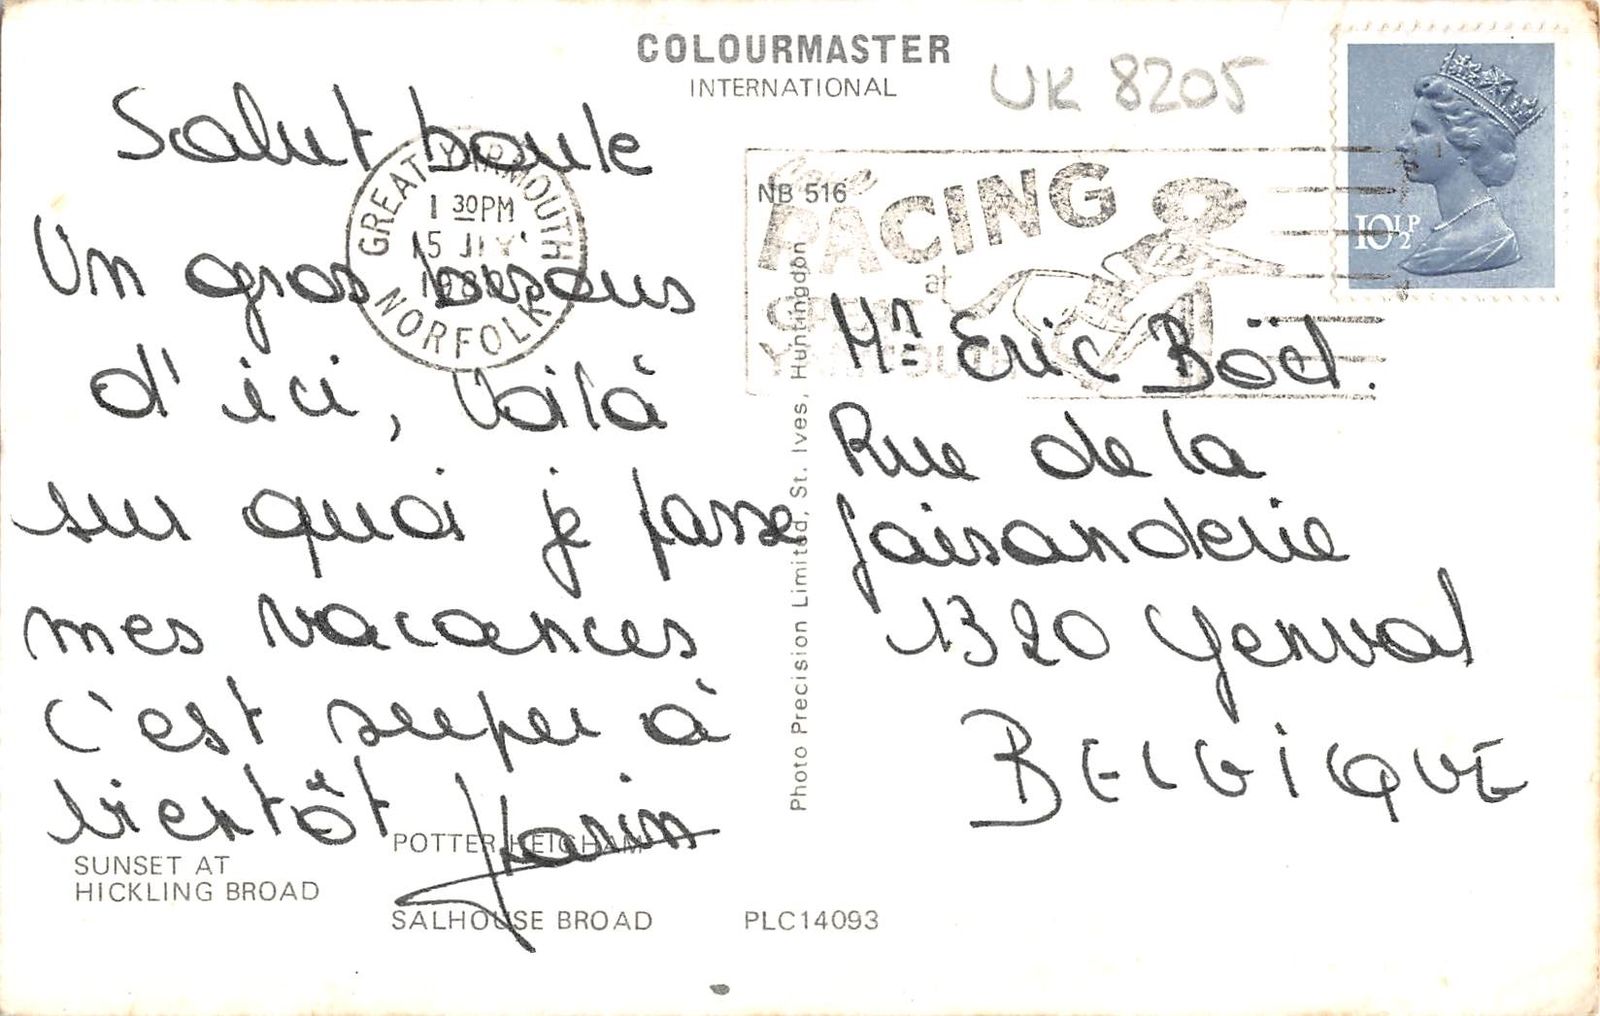 COLOURMASTER
INTERNATIONAL
UK 8205
Salut boule
Un gros bisous
d'ici, Voilà
sur quoi je passe
mes vacances
c'est super à
bientôt
Karin
GREAT YARMOUTH
1 30PM
15 JLY
NORFOLK
NB 516
RACING
at
GREAT
YARMOUTH
10½P
Mr Eric Boël.
Rue de la
faisanderie
1320 Genval
BELGIQUE
Photo Precision Limited, St. Ives, Huntingdon
SUNSET AT
HICKLING BROAD
POTTER HEIGHAM
SALHOUSE BROAD
PLC14093